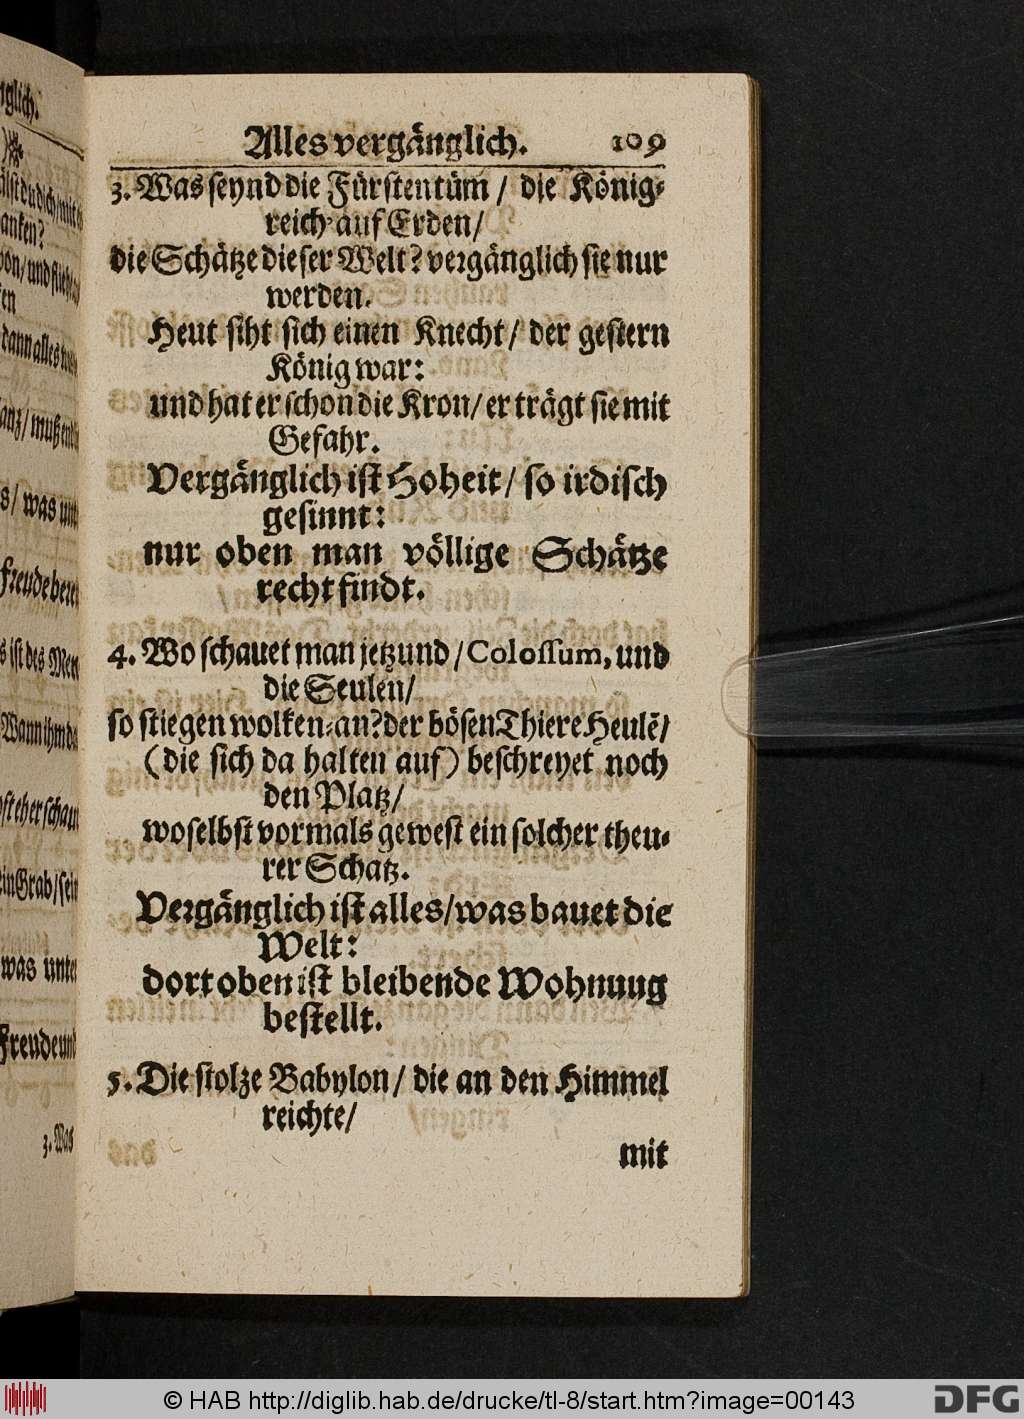 Alles vergänglich. 109
3. Was seynd die Fürstentüm / die König-
reich auf Erden/
die Schätze dieser Welt? vergänglich sie nur
werden.
Heut siht sich einen Knecht / der gestern
König war:
und hat er schon die Kron / er trägt sie mit
Gefahr.
Vergänglich ist Hoheit / so irdisch
gesinnt:
nur oben man völlige Schätze
recht findt.
4. Wo schauet man jetzund / Colossum, und
die Seulen/
so stiegen wolken-an? der bösen Thiere Heulē/
(die sich da halten auf) beschreyet noch
den Platz/
woselbst vormals gewest ein solcher theu-
rer Schatz.
Vergänglich ist alles / was bauet die
Welt:
dort oben ist bleibende Wohnung
bestellt.
5. Die stolze Babylon / die an den Himmel
reichte/
mit
nglich.
anken?
was unt
Freude
s ist des Men
Wann ihm da
ein Grab / sein
was unter
Freude und
3. Was
© HAB http://diglib.hab.de/drucke/tl-8/start.htm?image=00143
DFG